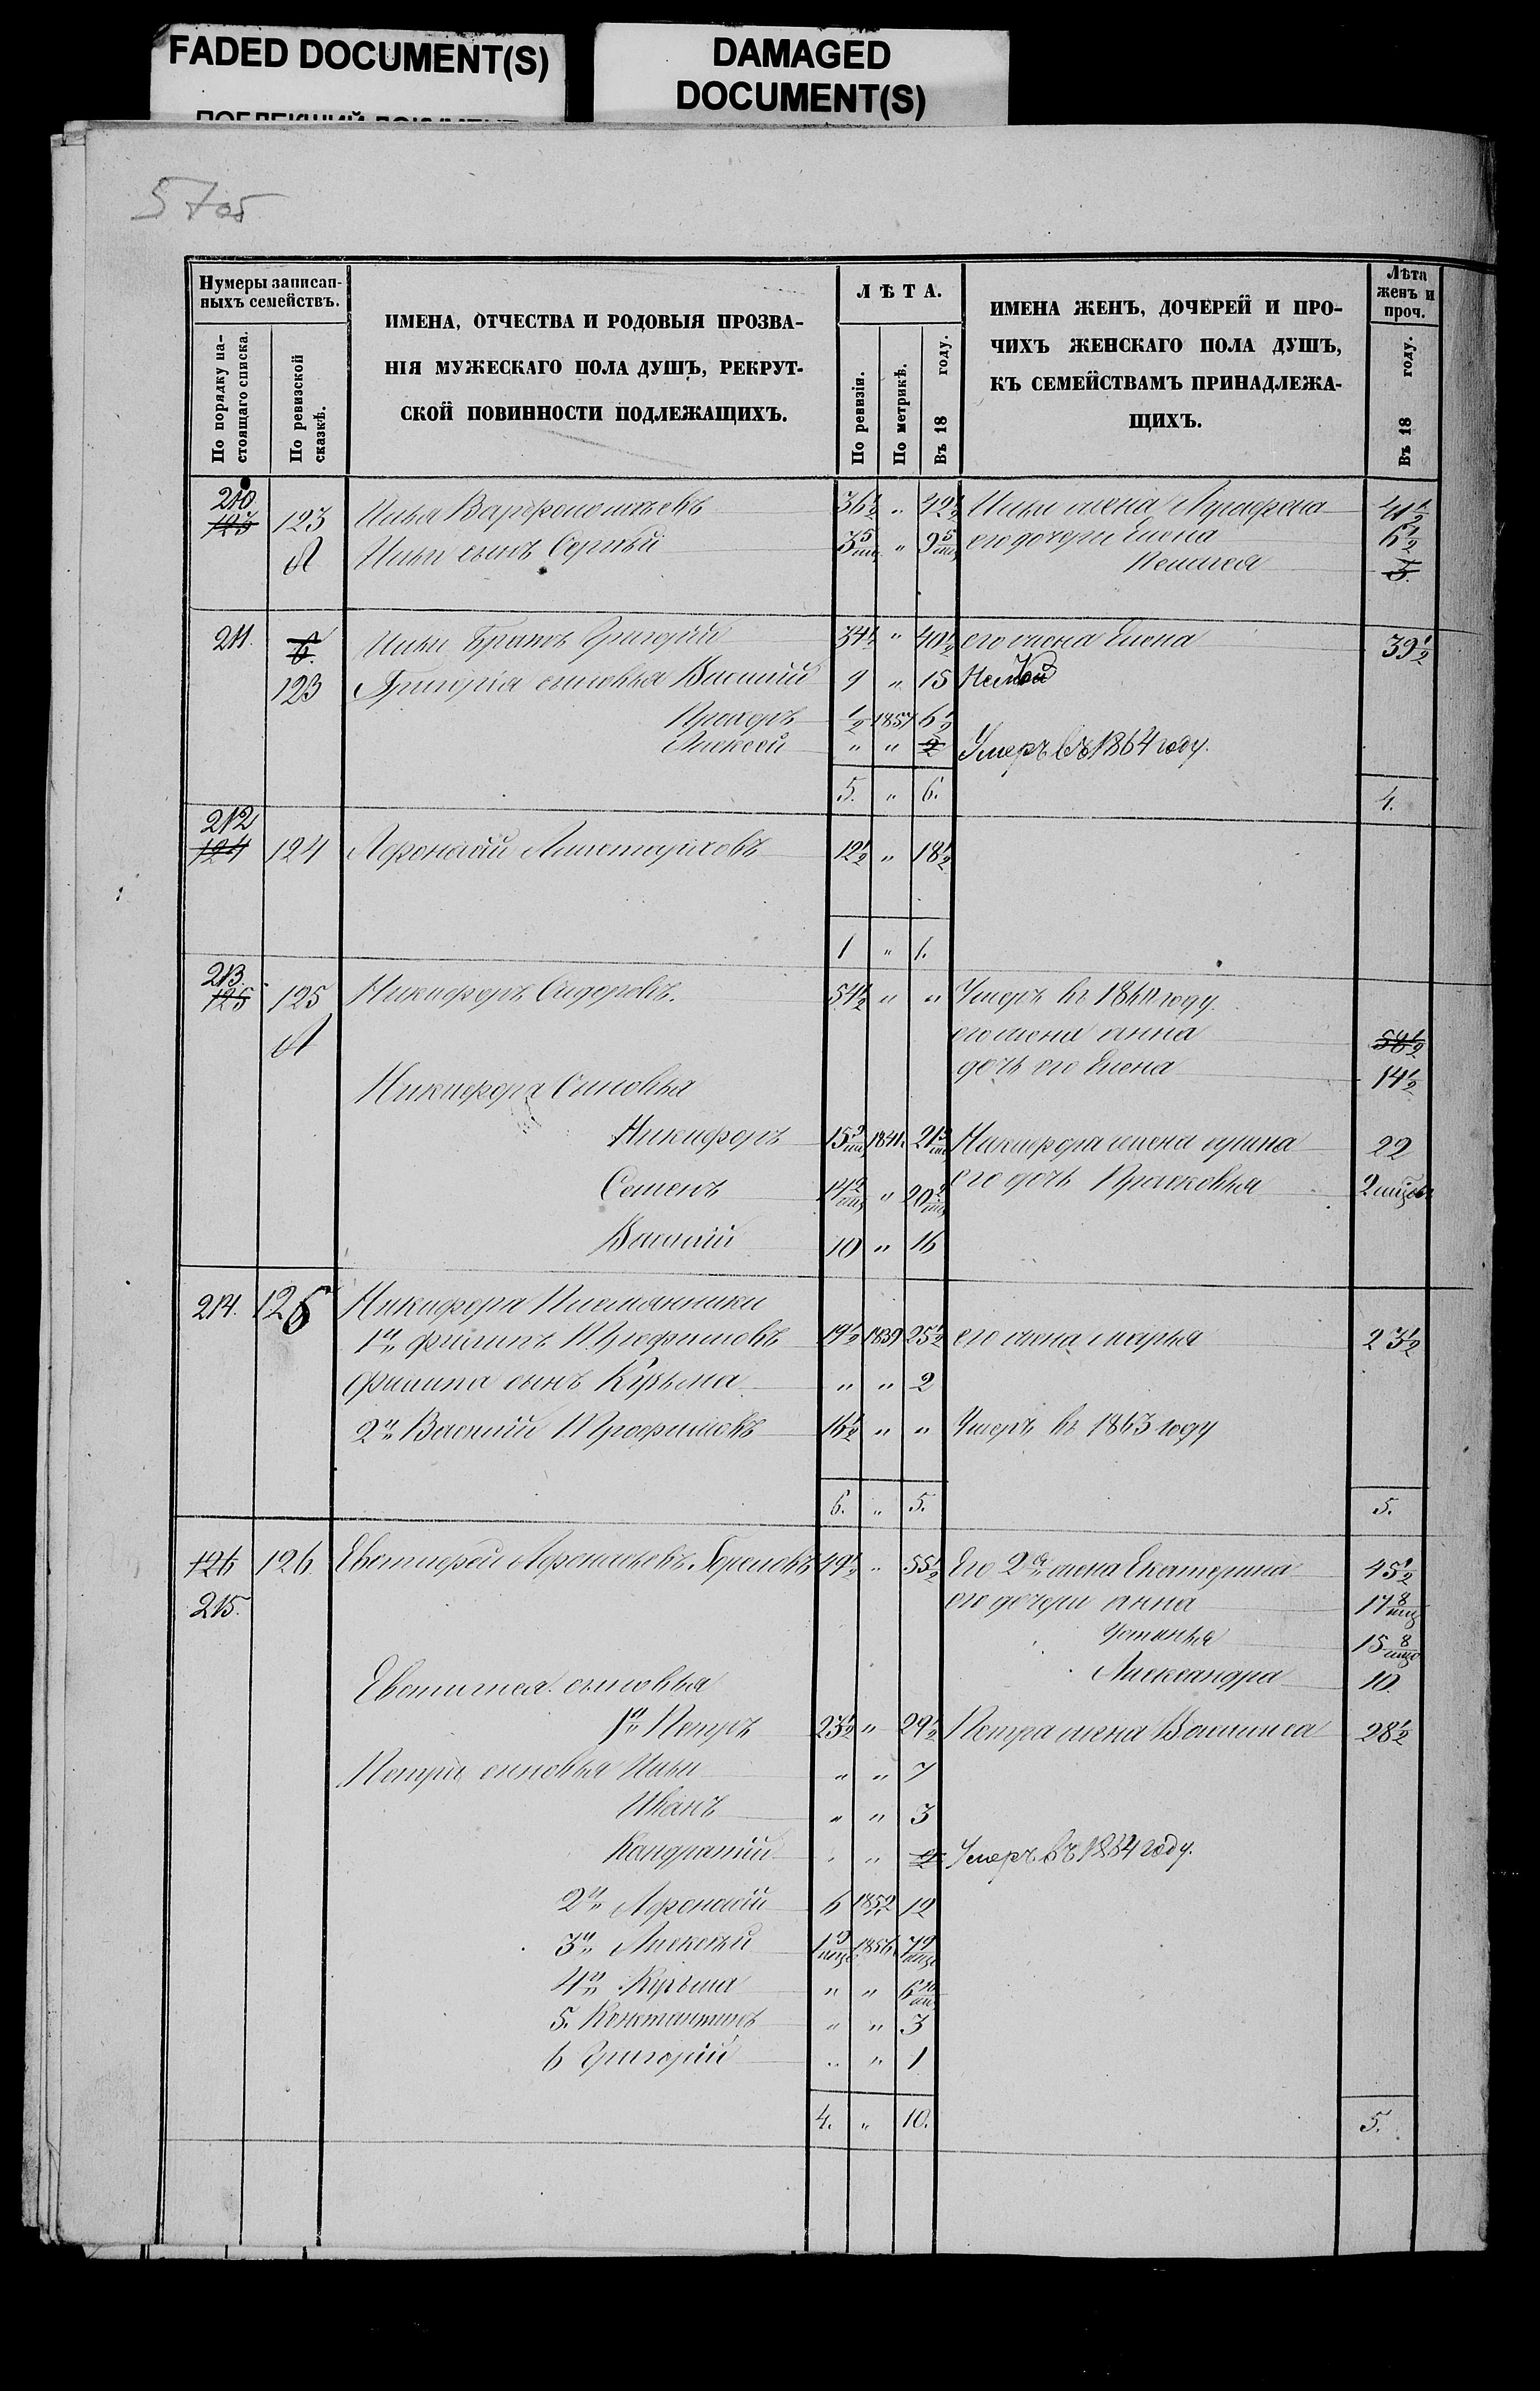 FADED DOCUMENT(S)
DAMAGED
DOCUMENT(S)
Нумеры записан-
ныхъ семействъ.
По порядку на-
стоящаго списка.
По ревизской
сказкѣ.
ИМЕНА, ОТЧЕСТВА И РОДОВЫЯ ПРОЗВА-
НІЯ МУЖЕСКАГО ПОЛА ДУШЪ, РЕКРУТ-
СКОЙ ПОВИННОСТИ ПОДЛЕЖАЩИХЪ.
ЛѢТА.
По ревизіи.
По метрикѣ.
Въ 18 году.
ИМЕНА ЖЕНЪ, ДОЧЕРЕЙ И ПРО-
ЧИХЪ ЖЕНСКАГО ПОЛА ДУШЪ,
КЪ СЕМЕЙСТВАМЪ ПРИНАДЛЕЖА-
ЩИХЪ.
Лѣта
женъ и
проч.
Въ 18 году.
210
123 123 Илья Варфоломѣевъ 36½ " 42½ Ильи жена 41½
Ильи сынъ Сергѣй 3 5/мц " 9 5/мц его дочери Елена 6½
Пелагея 3.
211. 6. Ильи братъ Григорій 34½ " 40½ его жена Елена 39½
123 Григорія сыновья Василій 9 " 15 Немой
Прохоръ ½ 1857 6½
Алексей " " 2 Умеръ въ 1864 году.
5. " 6. 4.
212
124 124 Афонасій 12½ " 18½
1 " 1.
213.
125 125 Никифоръ Сидоровъ. 54½ " " Умеръ въ году.
его жена анна 58½
дочь его Елена 14½
Никифора Сыновья
Никифоръ 15 21 Никифора жена 22
Семенъ " 20 его дочь Прасковья 2 мѣсяц
Василий 10 " 16
214. 125 Никифора Племянники
1й филипъ Трофимовъ 19½ 1839 25½ его жена марья 23½
филипа сынъ Кузьма " " 2
2й Василий Трофимовъ 16½ " " Умеръ въ 1863 году
6. " 5. 5.
126 126. Евстигней Афонасьевъ 49½ " 55½ Его 2я жена Екатерина 45½
215. его дочери анна 17 8/мц
Устинья 15 8/мц
Евстигнея сыновья Александра 10.
1й Петръ 23½ " 29½ Петра жена Василиса 28½
Петра сыновья Илья " " 7
Иванъ " " 3
Кандратий " " 2 Умеръ въ 1864 году.
2й Афонасий 6 1852 12
3й Алексѣй 1 1856 7
4й Кузьма " " 6
5. Константинъ " " 3
6 Григорий " " 1
4. " 10. 5.